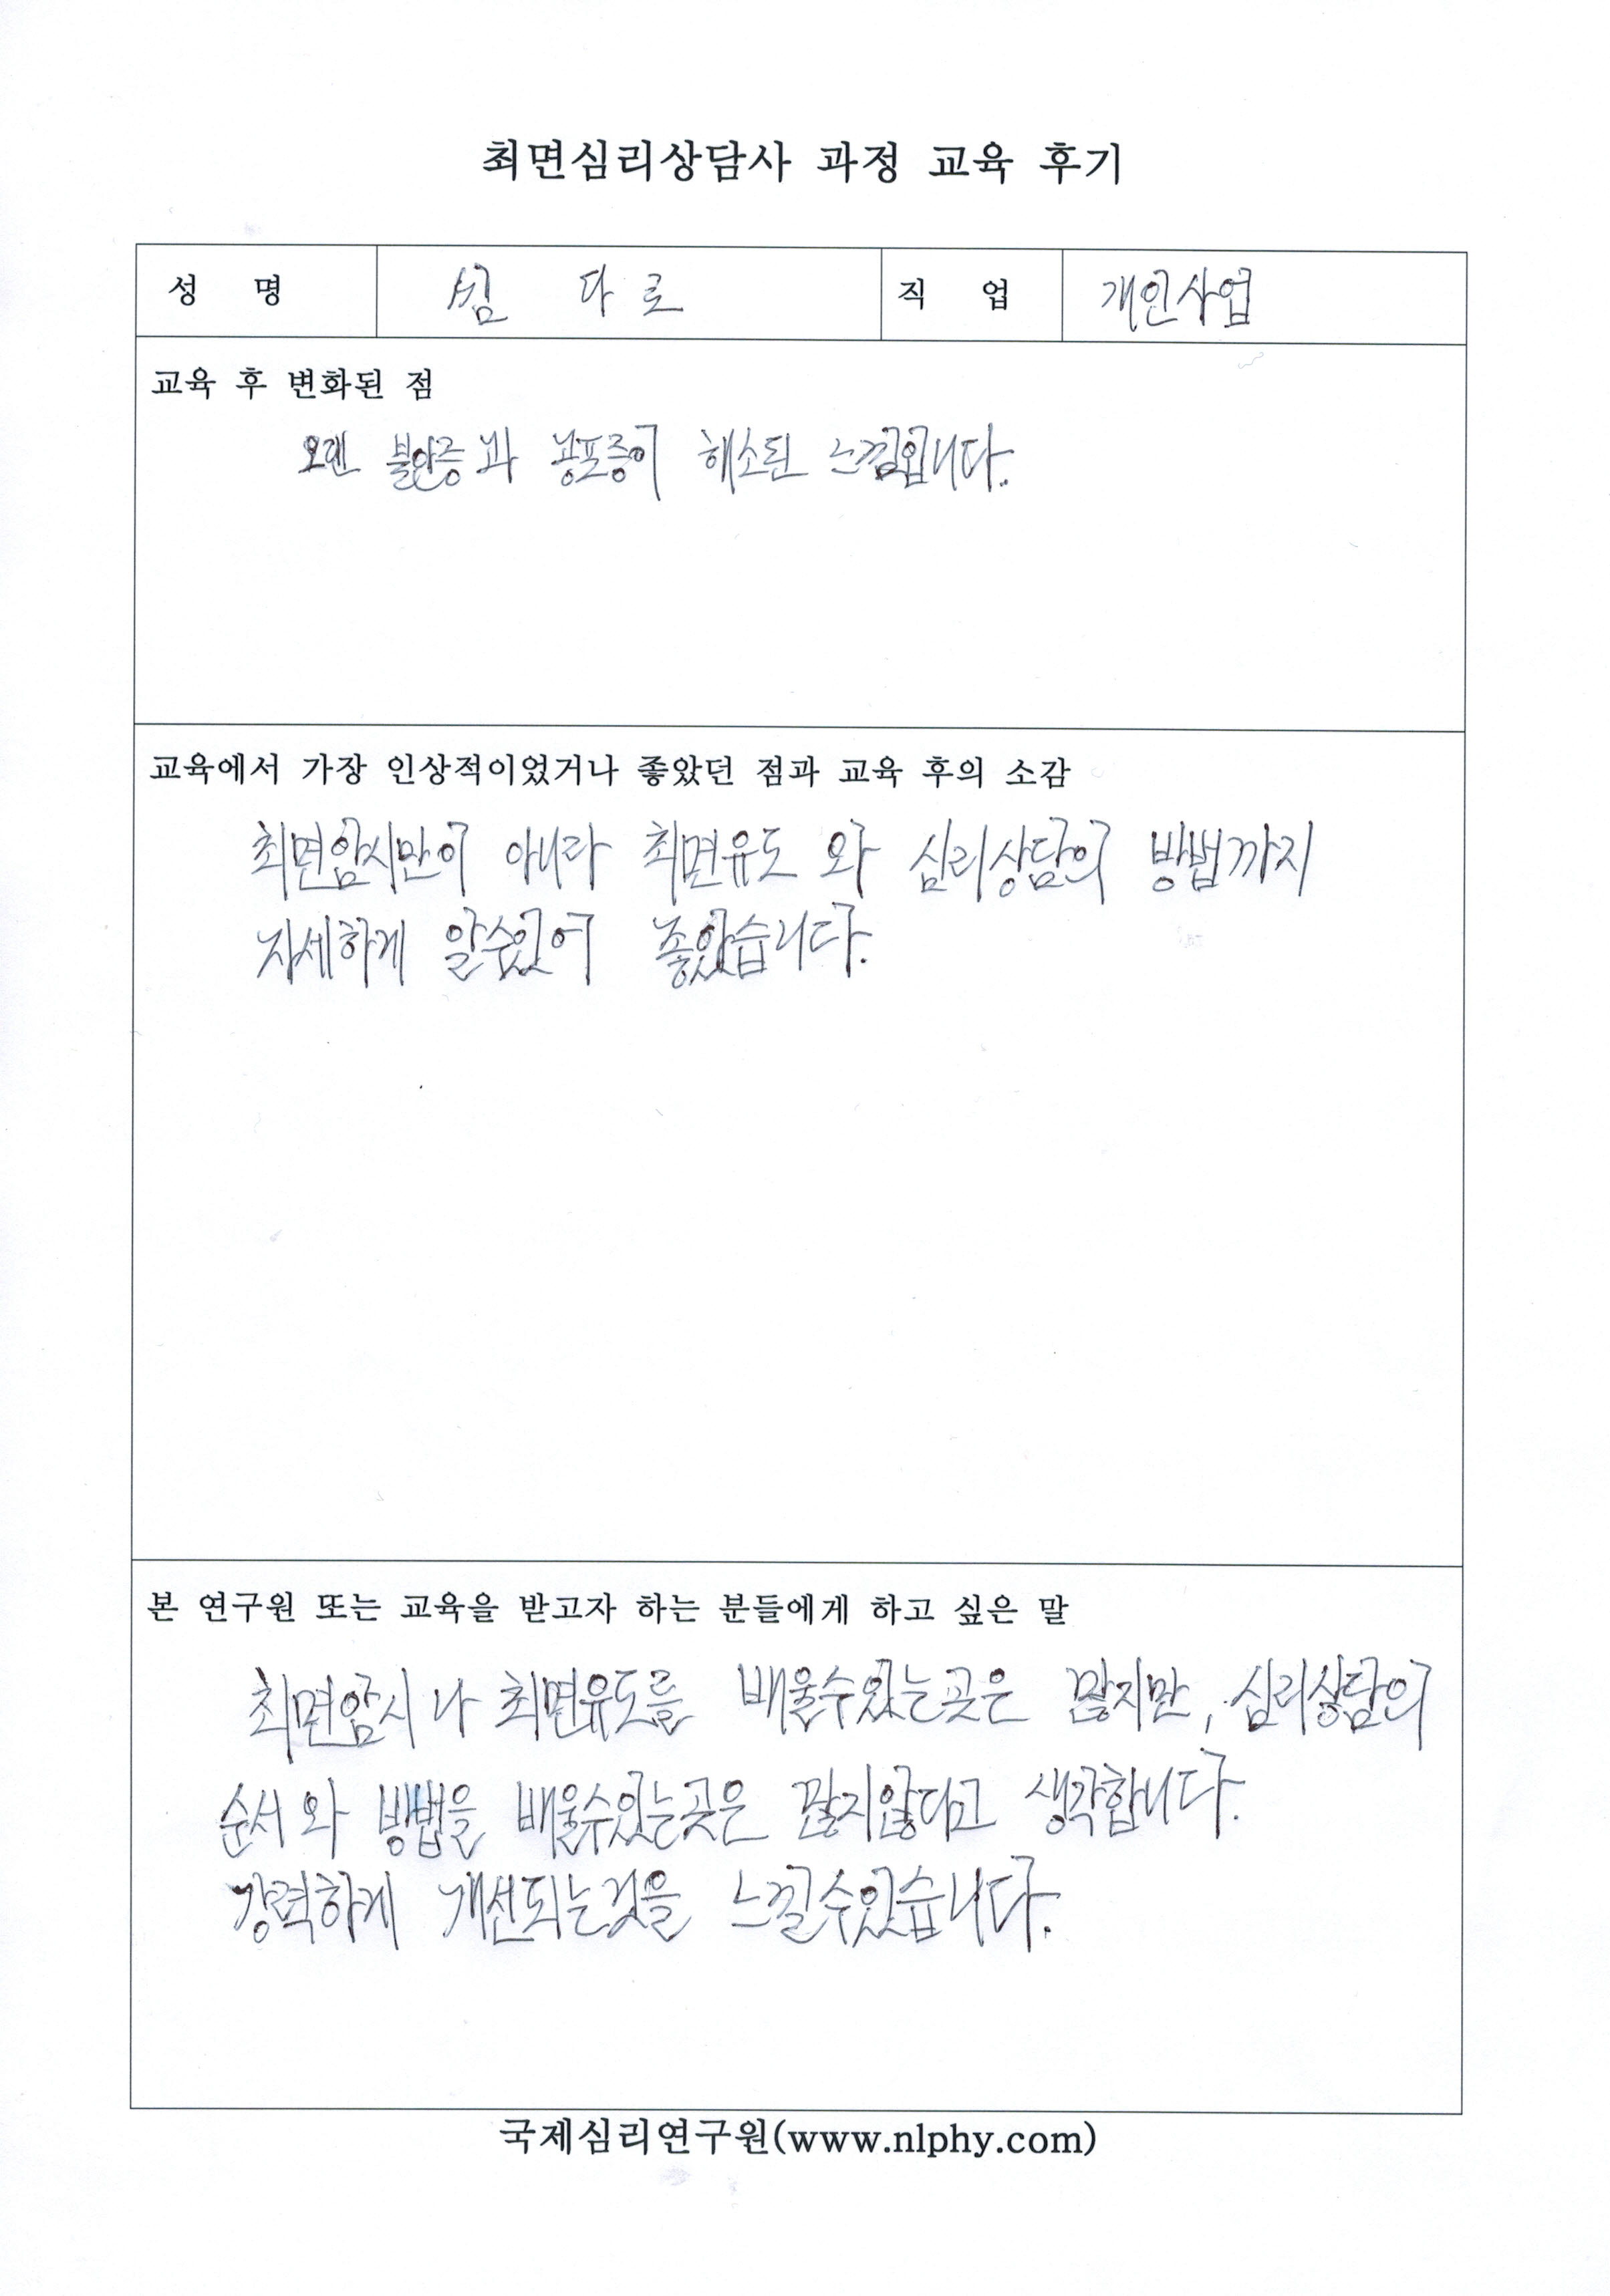 최면심리상담사 과정 교육 후기
성 명 섬 다로 직 업 개인사업
교육 후 변화된 점
오랜 불안증과 공포증이 해소된 느낌입니다.
교육에서 가장 인상적이었거나 좋았던 점과 교육 후의 소감
최면암시만이 아니라 최면유도와 심리상담의 방법까지
자세하게 알수있어 좋았습니다.
본 연구원 또는 교육을 받고자 하는 분들에게 하고 싶은 말
최면암시나 최면유도를 배울수있는곳은 많지만, 심리상담의
순서와 방법을 배울수있는곳은 많지않다고 생각합니다.
강력하게 개선되는것을 느낄수있습니다.
국제심리연구원(www.nlphy.com)